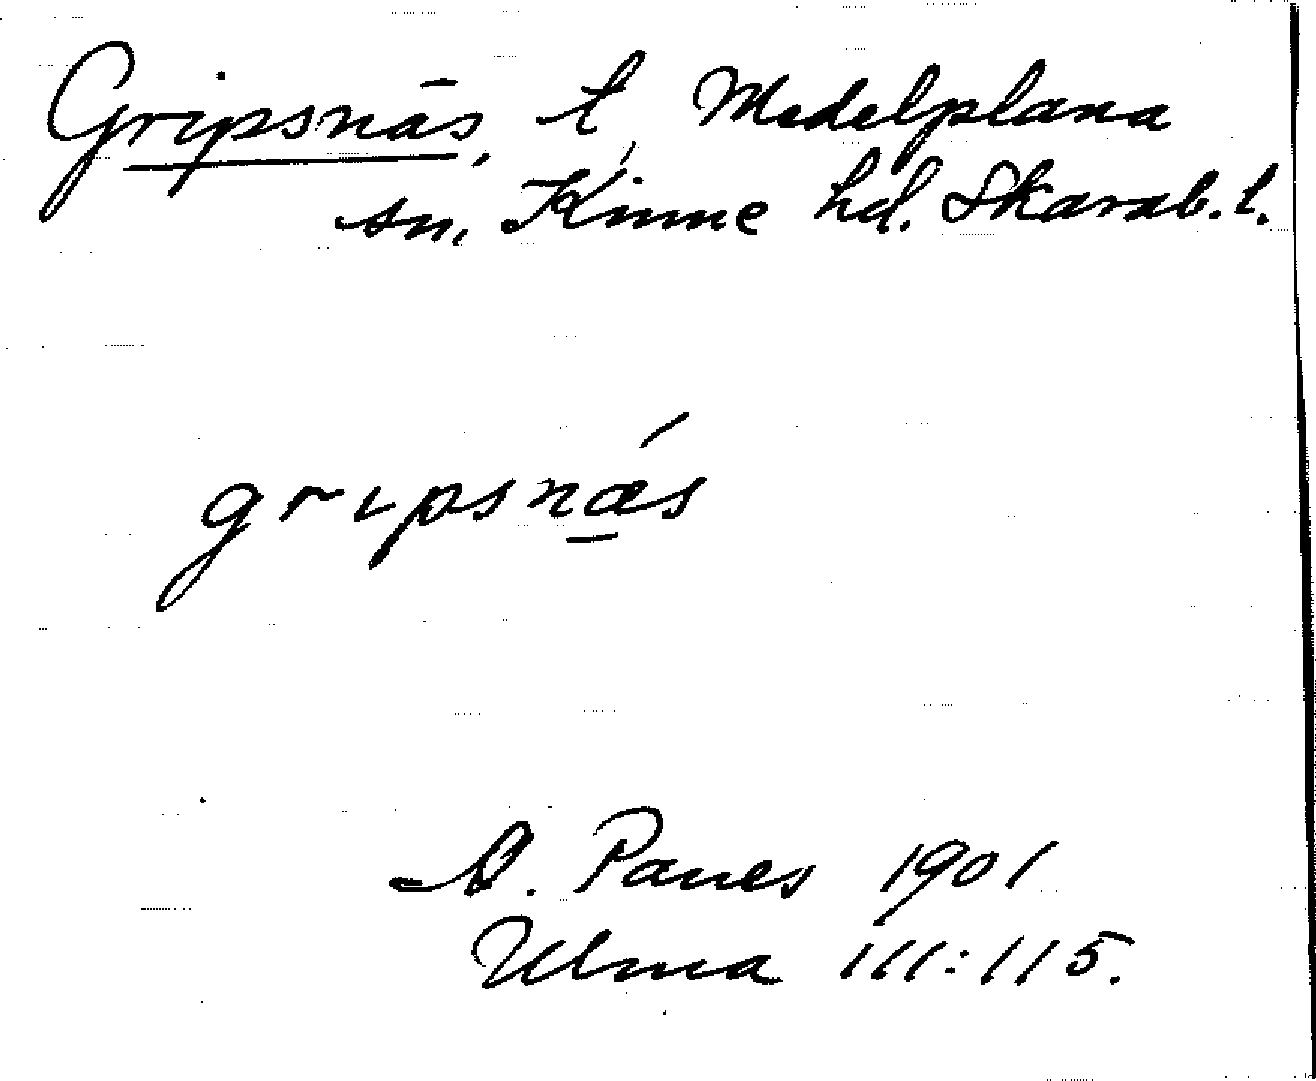 Gripsnäs, t, Medelplana
sn, Kinne hd. Skarab. l.
gripsnǽ̲s
A. Panes 1901
Ulma 111:115.